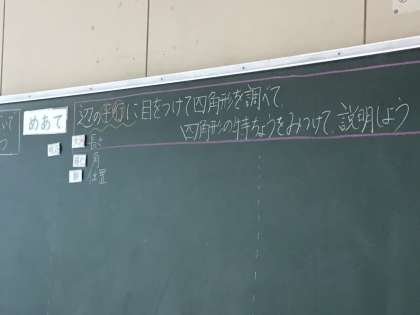 めあて
辺の平行に目をつけて四角形を調べて、
四角形の特ちょうをみつけて、説明しよう
長さ
角
位置